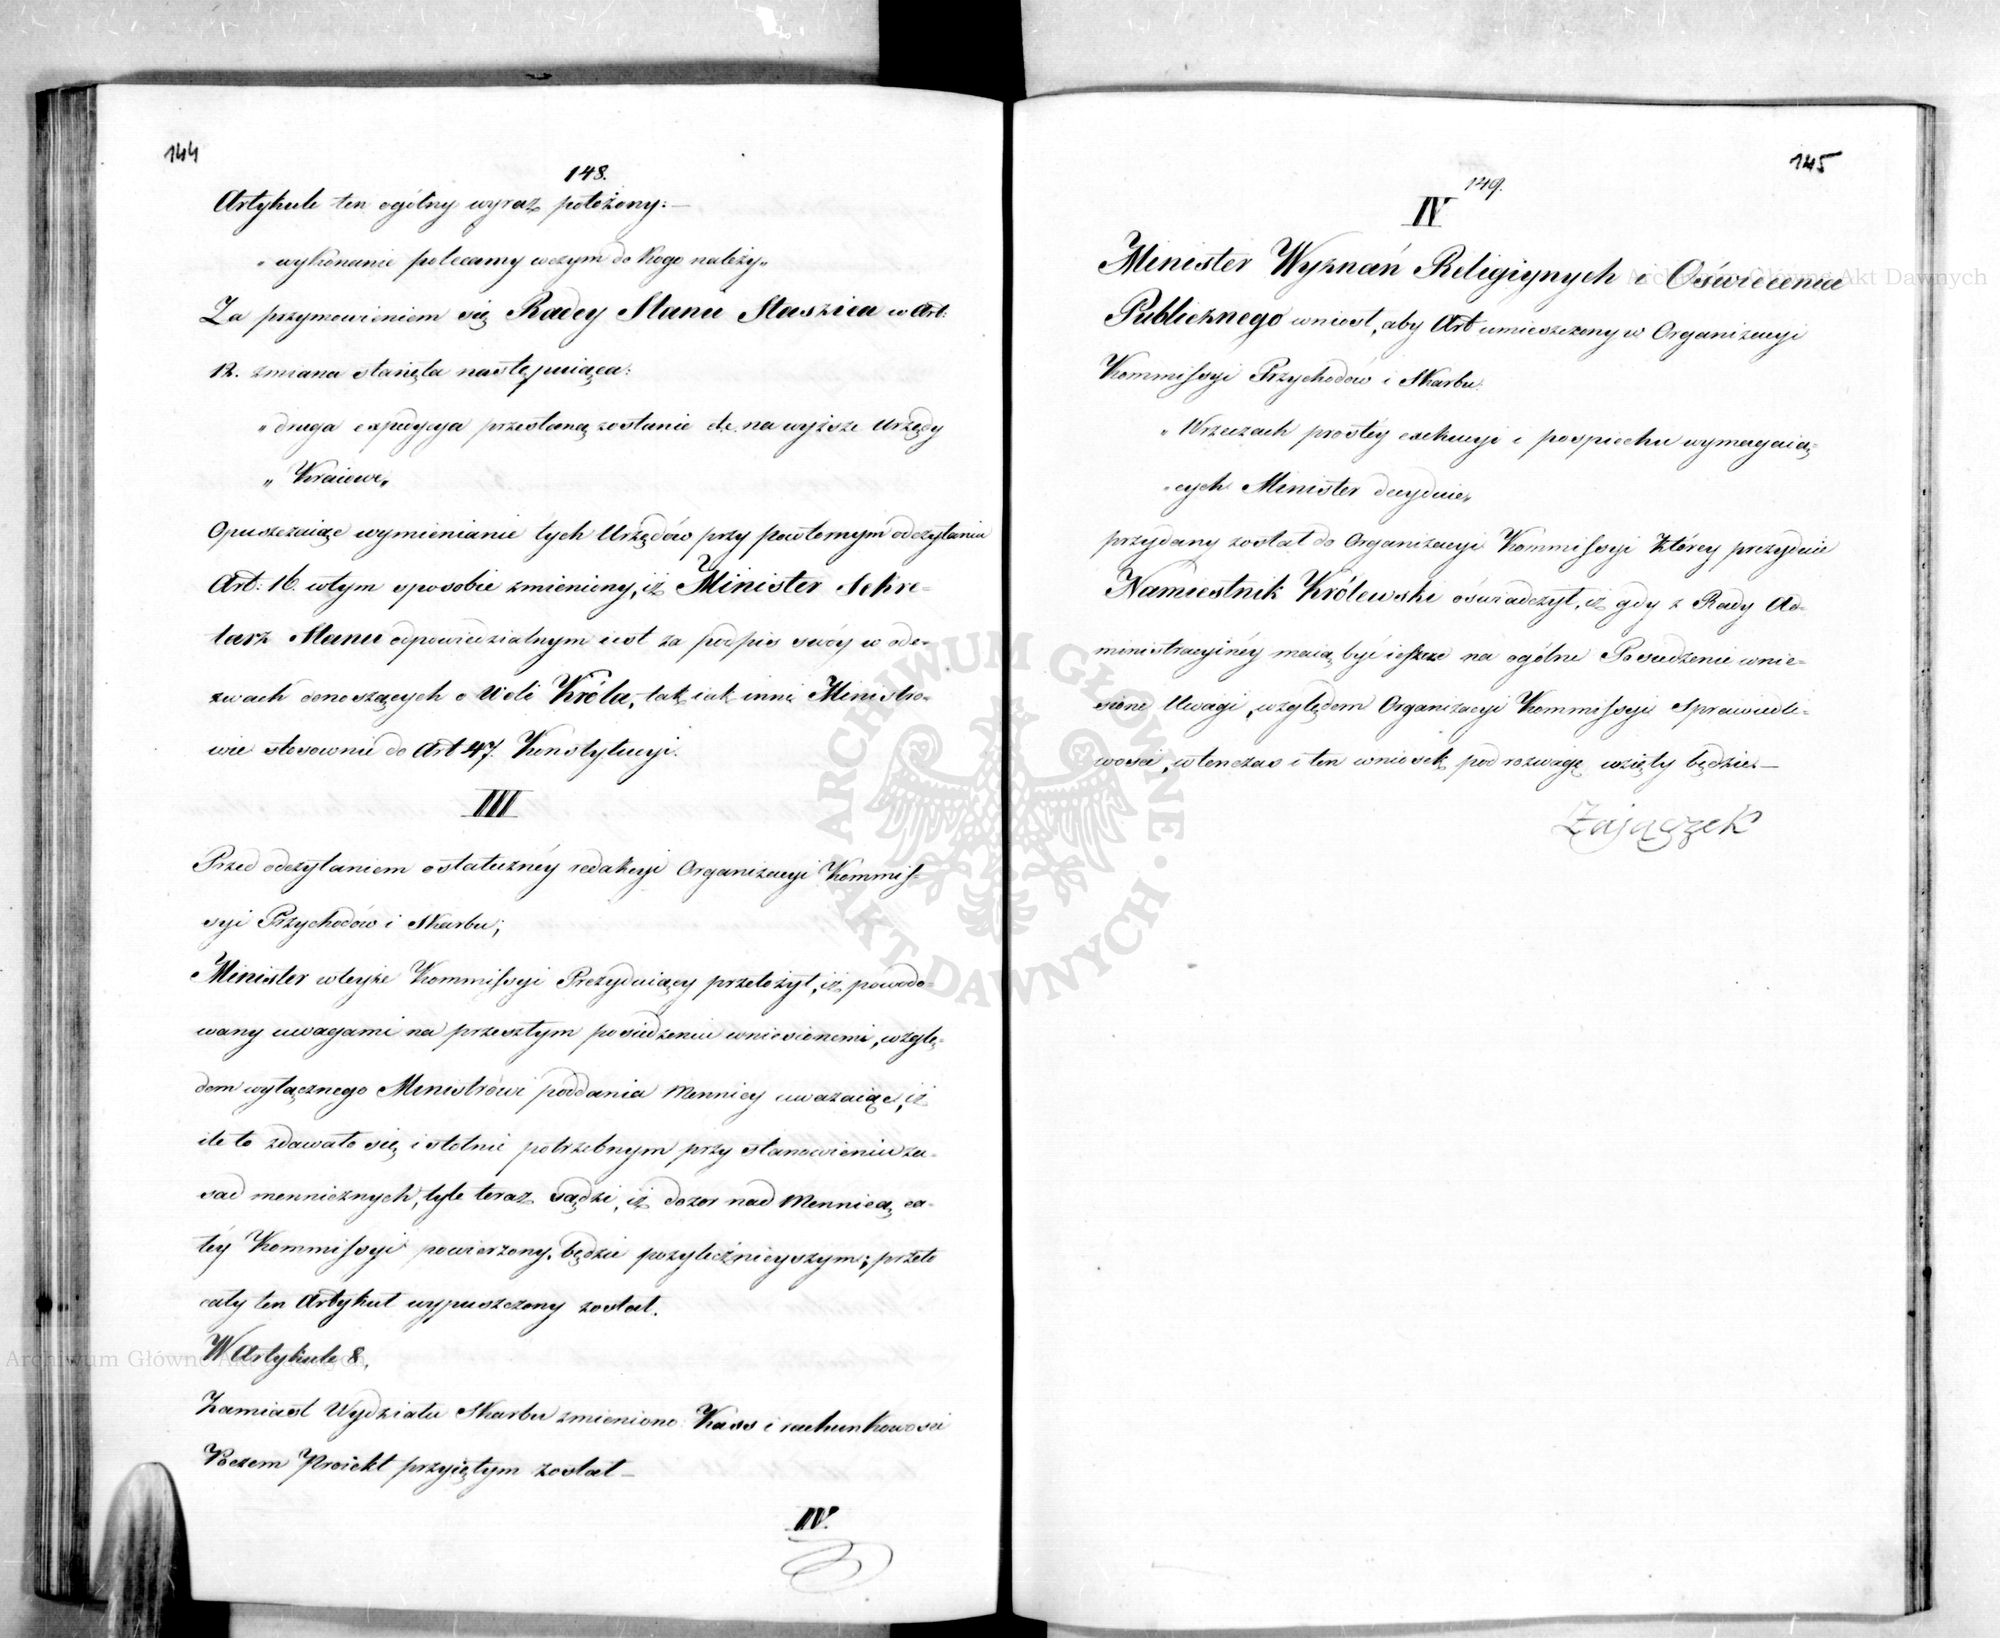 144
148.
Artykule ten ogólny wyraz położony: —
„wykonanie polecamy wczym do kogo należy„
Za przymówieniem się Radcy Stanu Staszica w Art:
12. zmiana stanęła następuiąca:
„druga expedycya przesłaną zostanie etc. na wyższe Urzędy
„Kraiowe„
Opuszczaiąc wymienianie tych Urzędów przy powtornym odczytaniu
Art: 16. wtym sposobie zmieniony, iż Minister Sekre-
tarz Stanu odpowiedzialnym iest za podpis swóy w ode-
zwach donoszących o Woli Króla, tak iak inni Ministro-
wie stosownie do Art 47. Konstytucyi.
III
Przed odczytaniem ostateczney redakcyi Organizacyi Kommis-
syi Przychodów i Skarbu;
Minister wteyże Kommissyi Prezyduiący przełożył, iż powodo-
wany uwagami na przeszłym posiedzeniu wniesionemi, wzglę-
dem wyłącznego Ministrowi poddania Mennicy uważaiąc, iż
ile to zdawało się istotnie potrzebnym przy stanowieniu za-
sad menniczych, tyle teraz sądzi, iż dozor nad Mennicą ca-
łéy Kommissyi powierzony, będzie pożytecznieyszym; przeto
cały ten Artykuł wypuszczony został.
W Artykule 8,
Zamiast Wydziału Skarbu zmieniono Kass i rachunkowości
Poczem Proiekt przyiętym został —
IV.
145
149.
IV
Minister Wyznań Religiynych i Oświecenia
Publicznego wniosł, aby Art umieszczony w Organizacyi
Kommissyi Przychodów i Skarbu:
„Wrzeczach prostéy exekucyi i pospiechu wymagaią-
„cych Minister decyduie„
przydany został do Organizacyi Kommissyi którey prezyduie
Namiestnik Królewski oświadczył, iż gdy z Rady Ad-
ministracyinéy maią być ieszcze na ogólne Posiedzenie wnie-
sione Uwagi, względem Organizacyi Kommissyi Sprawiedli-
wości, wtenczas i ten wniosek pod rozwagę wzięty będzie. —
Zajączek
ARCHIWUM GŁÓWNE · AKT DAWNYCH ·
Archiwum Główne Akt Dawnych
Archiwum Główne Akt Dawnych